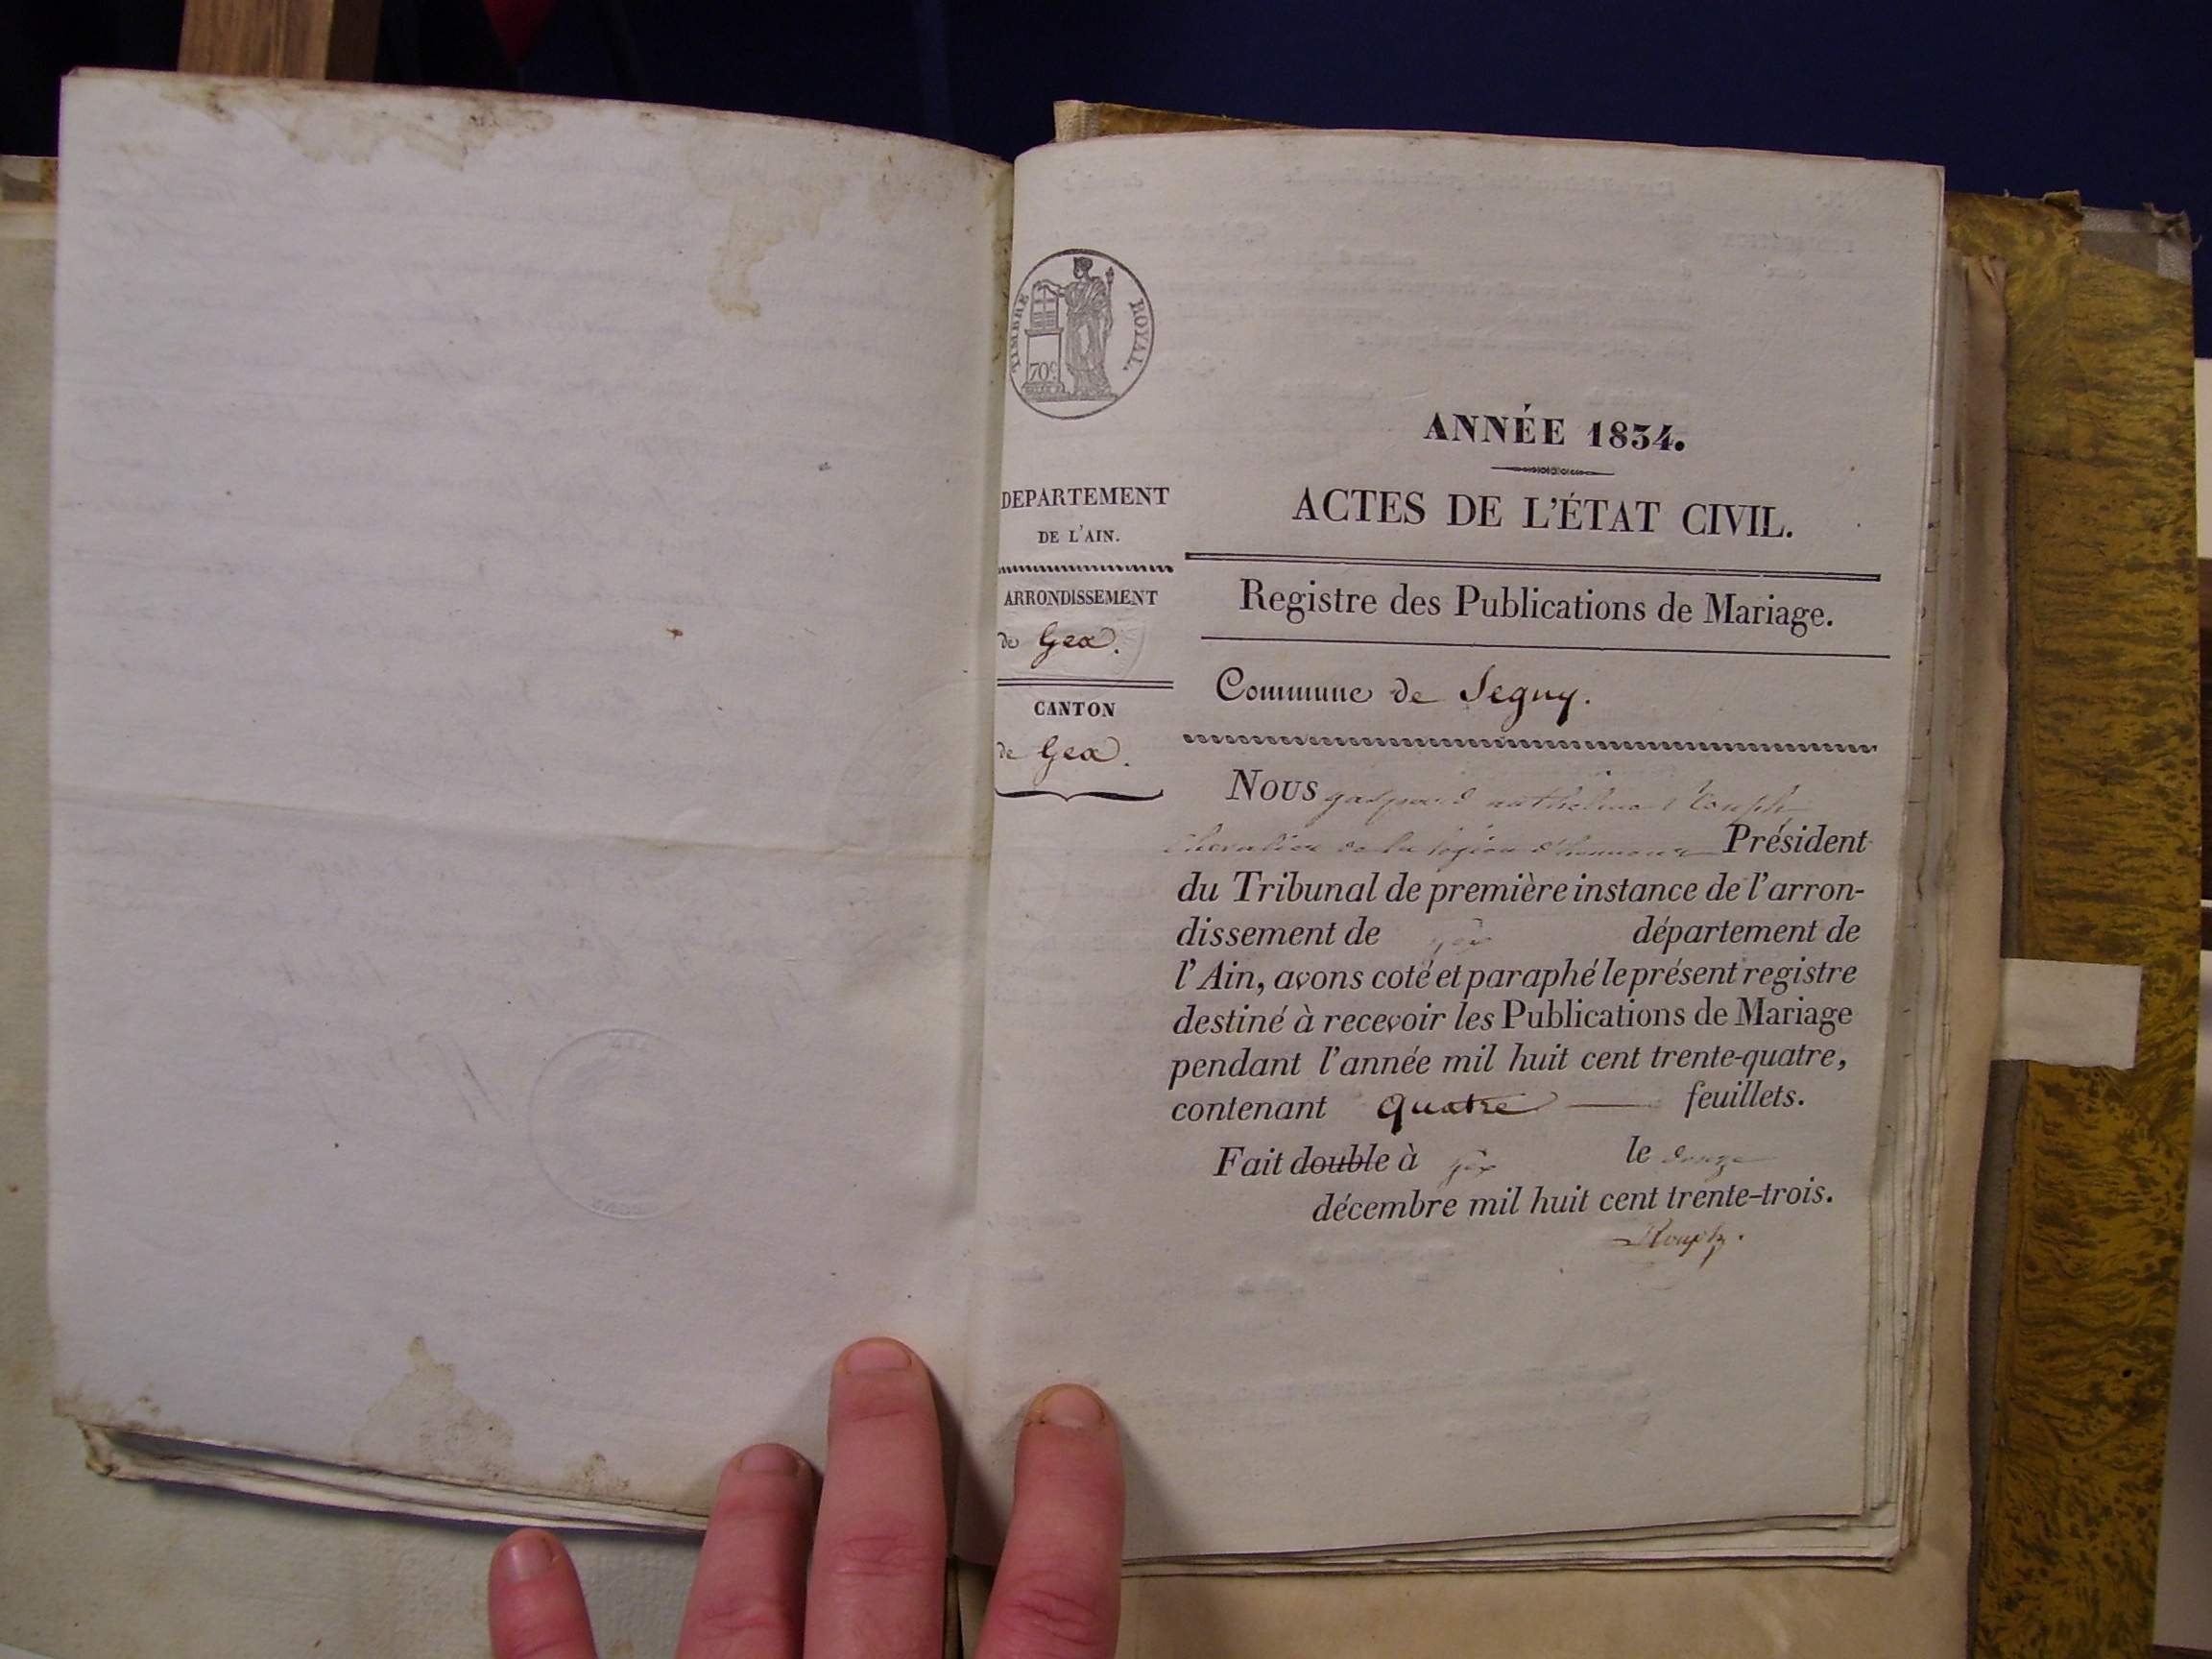 TIMBRE ROYAL.
70c
ANNÉE 1834.
DEPARTEMENT
DE L'AIN.
ARRONDISSEMENT
de Gex.
CANTON
de Gex.
ACTES DE L'ÉTAT CIVIL.
Registre des Publications de Mariage.
Commune de Segny.
Nous gaspard
chevalier de la légion d'honneur Président
du Tribunal de première instance de l'arron-
dissement de gex département de
l'Ain, avons coté et paraphé le présent registre
destiné à recevoir les Publications de Mariage
pendant l'année mil huit cent trente-quatre,
contenant quatre — feuillets.
Fait double à gex le douze
décembre mil huit cent trente-trois.